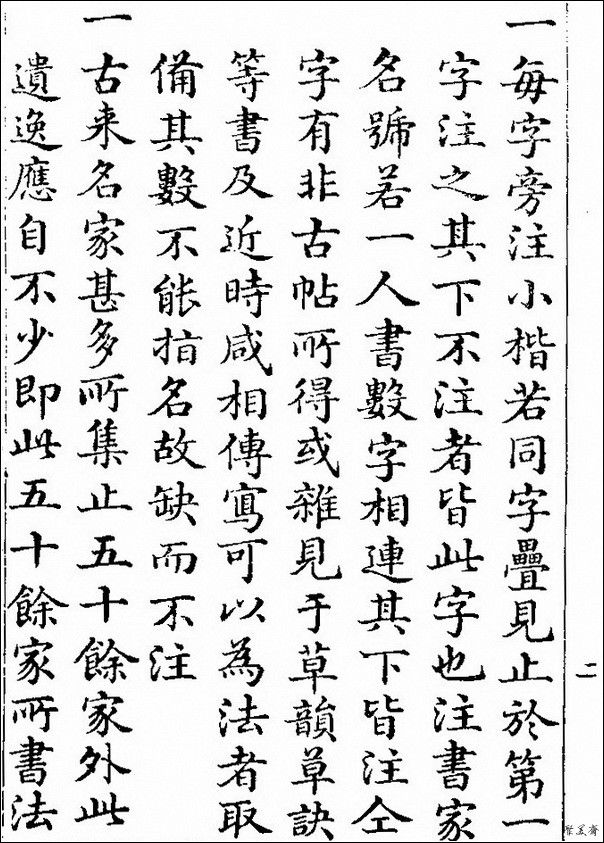 一每字旁注小楷若同字疊見止於第一
字注之其下不注者皆此字也注書家
名號若一人書數字相連其下皆注仝
字有非古帖所得或雜見于草韻草訣
等書及近時咸相傳寫可以為法者取
備其數不能指名故缺而不注
一古来名家甚多所集止五十餘家外此
遺逸應自不少即此五十餘家所書法
二